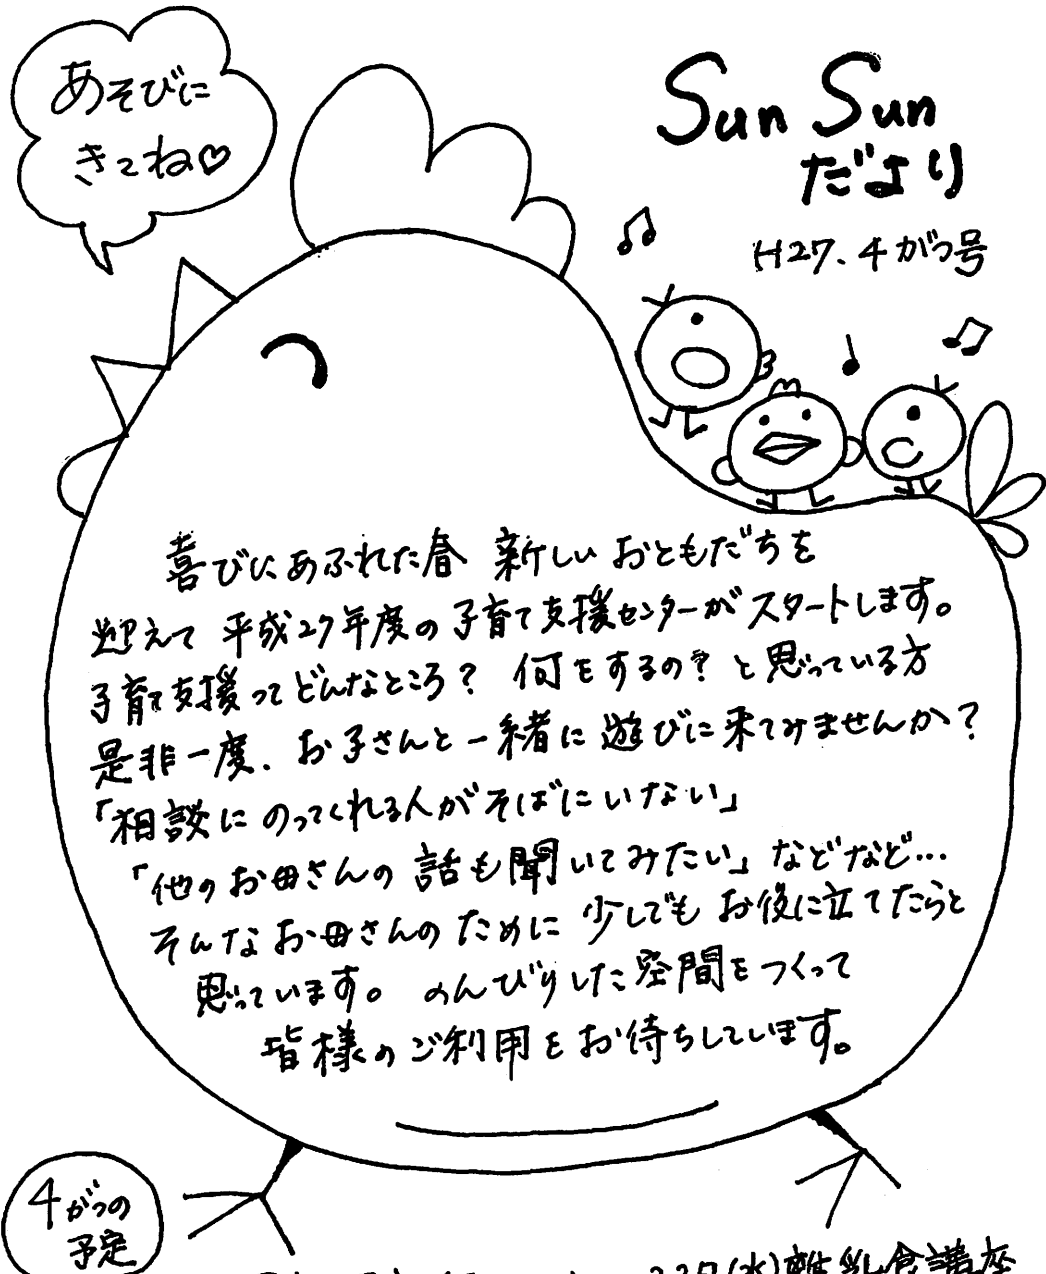 あそびに
きてね♡
Sun Sun
だより
H27.4がつ号
喜びにあふれた春 新しいおともだちを
迎えて 平成27年度の子育て支援センターがスタートします。
子育て支援ってどんなところ？ 何をするの？と思っている方
是非一度、お子さんと一緒に遊びに来てみませんか？
「相談にのってくれる人がそばにいない」
「他のお母さんの話も聞いてみたい」などなど…
そんなお母さんのために少しでもお役に立てたらと
思っています。のんびりした空間をつくって
皆様のご利用をお待ちしています。
4がつの
予定
(水)離乳食講座